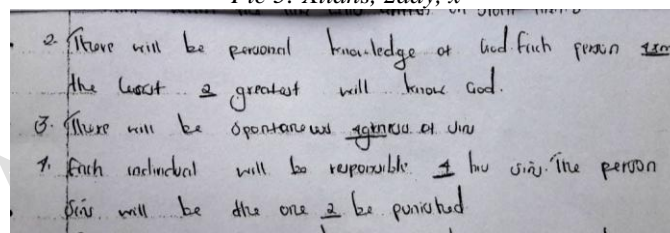 2. There will be personal knowledge of God. Each person
the least 2 greatest will know God.
3. There will be spontaneous 4gtness of sin
4. Each individual will be responsible 4 his sins. The person
sins will be the one 2 be punished